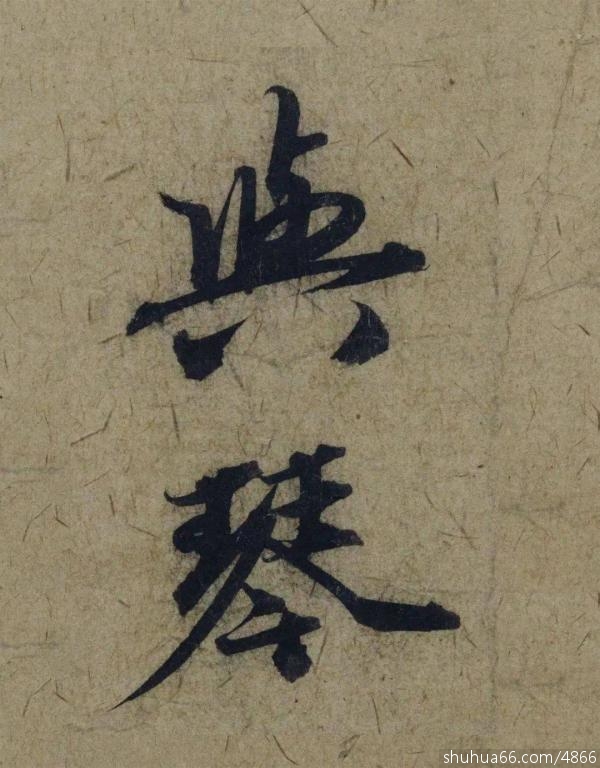 與
琴
shuhua66.com/4866